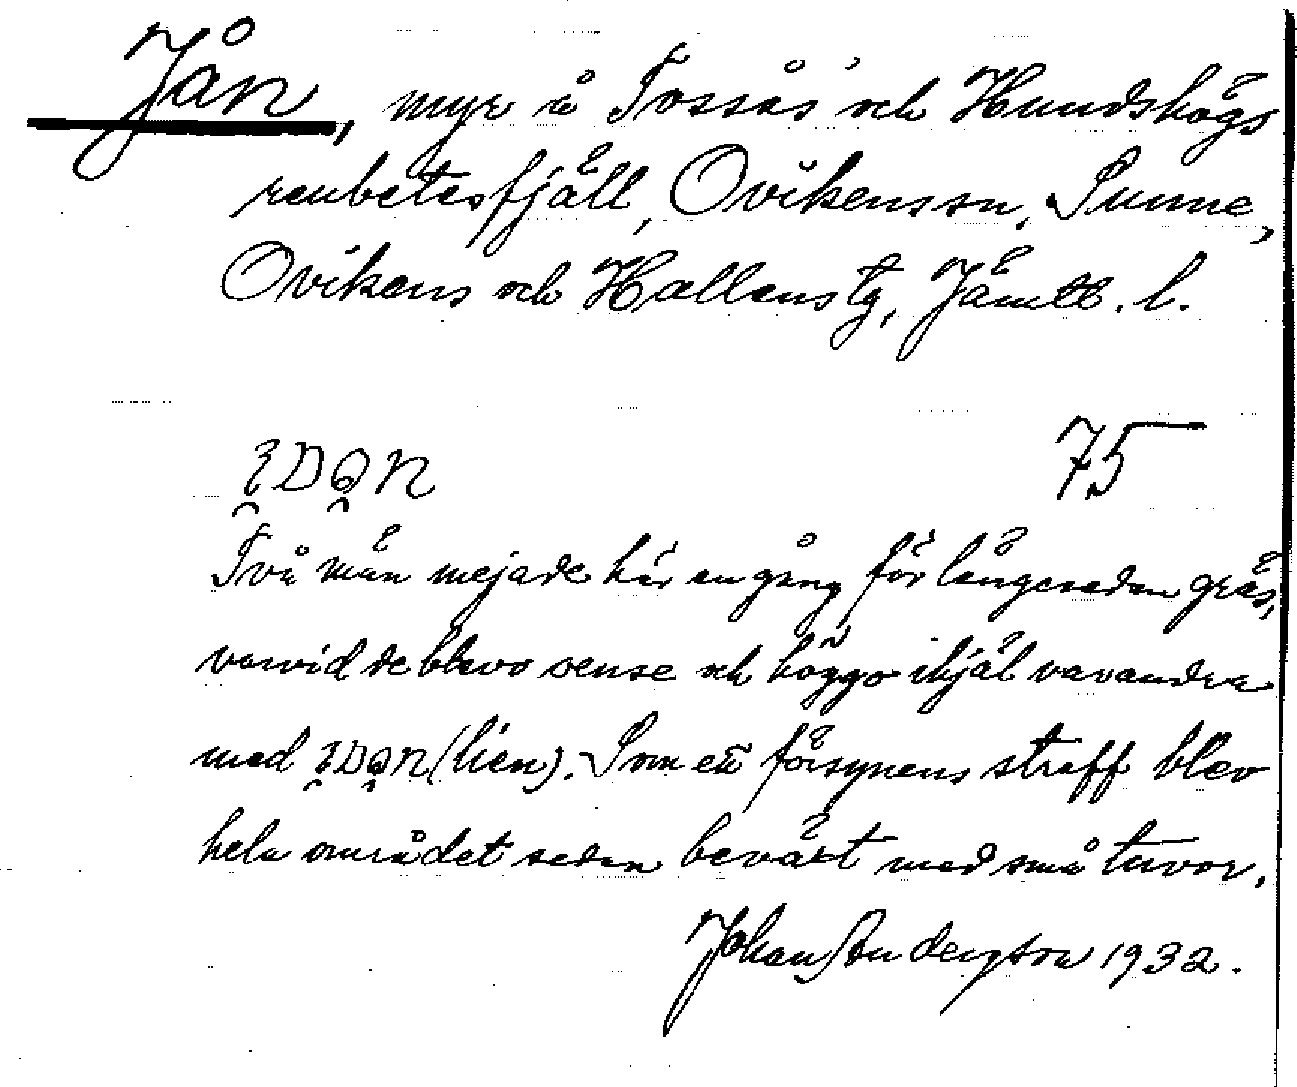 Jån, myr å Tossås och Hundshögs
renbetesfjäll, Ovikens sn, Sunne,
Ovikens och Hallens tg, Jämtl. l.
75
Två män mejade här en gång för länge sedan gräs,
varvid de blevo oense och höggo ihjäl varandra
med (lien). Som ett försynens straff blev
hela området sedan beväxt med små tuvor.
Johan Anderson 1932.